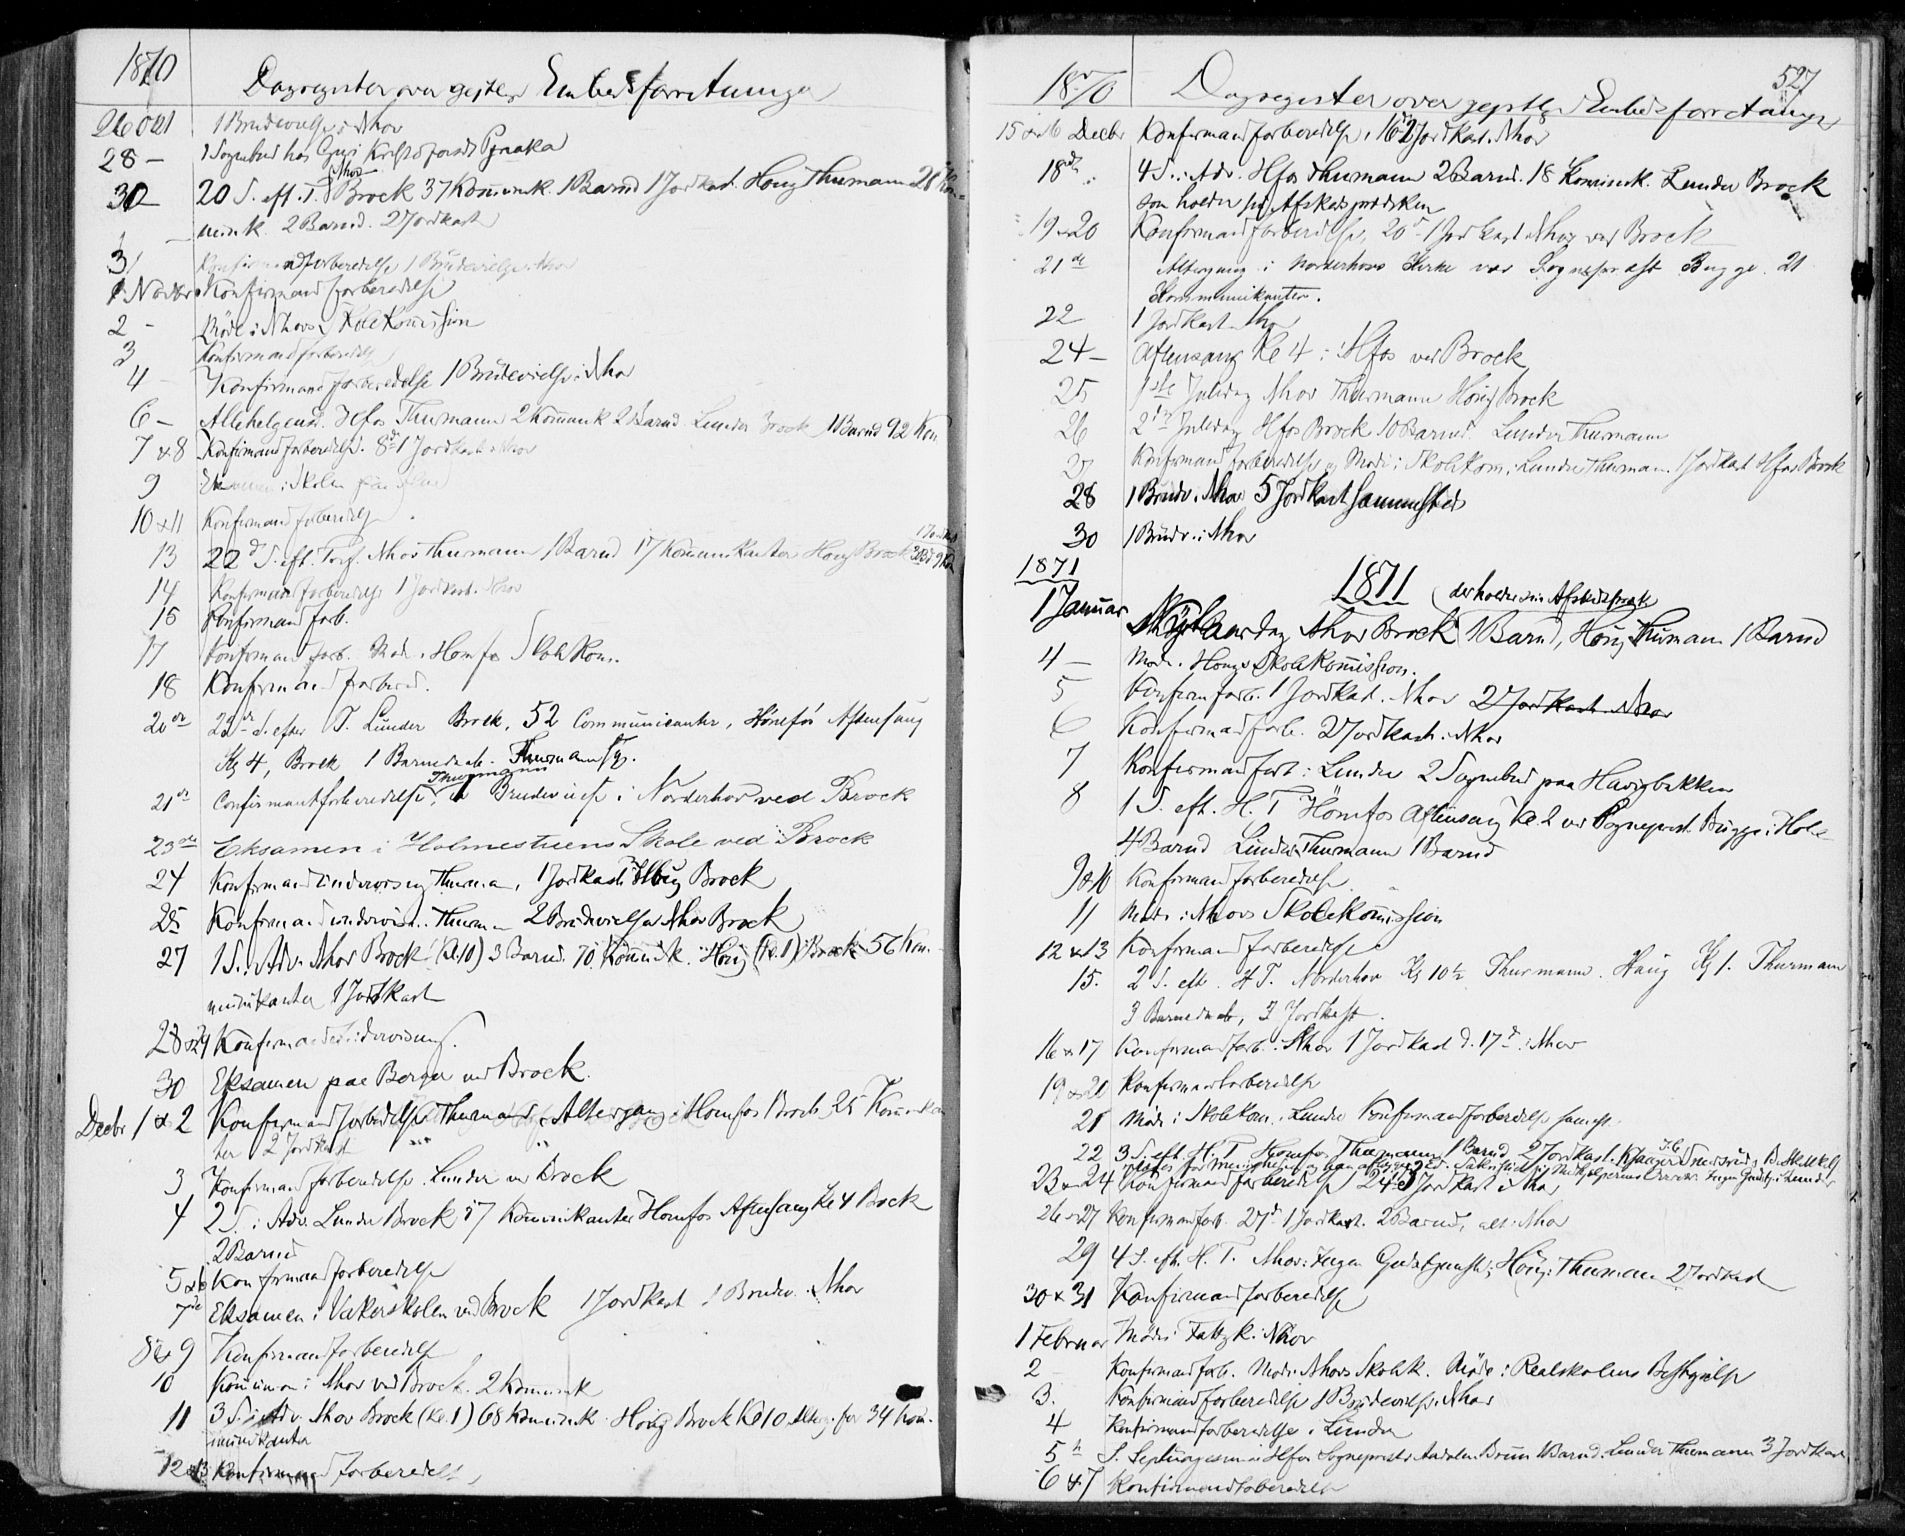 1870
Dagregister over gejstlige Embedsforretninger
26 Oct 1 Brudevielse i Nhov
28 – 1 Sognebud hos
30 – 20 S. eft. T. Nhov Brock 37 Kommunik. 1 Barnd 1 Jordkast. Houg Thurmann 28 Kom-
munik. 2 Barnd. 2 Jordkast
31 Konfirmandforberedelse 1 Brudevielse Nhov
1 Novbr Konfirmandforberedelse
2 – Møde i Nhovs Skolekommission
3 Konfirmandforberedelse
4 – Konfirmandforberedelse 1 Brudevielse i Nhov
6 – Allehelgensd. Hfos Thurmann 2 Kommunik 2 Barnd. Lunder Brock 1 Barnd 92 Kom
7 & 8 Konfirmandforberedelse. 8de 1 Jordkast i Nhov
9 Eksamen i Skolen paa
10 & 11 Konfirmandforberedelse
13 22d S. eft. Tref. Nhov Thurmann 1 Barnd 17 Kommunikanter Houg Brock
14 Konfirmandforberedelse 1 Jordkast. Nhov
15 Konfirmandforb.
17 Konfirmandforb. Møde i Hønefos Skolekom.
18 Konfirmandforbered.
20de 23de S. efter T. Lunder Brock, 52 Communicanter, Hønefos Aftensang
Kl 4, Brock 1 Barnedaab. Thurmann syg.
21de Confirmantforberedelse, Thurmann en Brudevielse i Norderhov ved Brock
23de Eksamen i Holmestuens Skole ved Brock
24 Konfirmandundervisning Thurman, 1 Jordkast i Houg Brock
25 Konfirmandundervisn. Thurman 2 Brudevielser Nhov Brock
27 1 S. i Adv. Nhov Brock (Kl. 10) 3 Barnd. 70 Kommunik. Houg (Kl. 1) Brock 56 Kom-
munikanter 1 Jordkast
28 & 29 Konfirmandundervisning.
30 Eksamen paa Berger ved Brock.
Decbr 1 & 2 Konfirmandforberedelse Thurmann, Altergang i Hønefos Brock 25 Kommunikan
ter 2 Jordkast
3 Konfirmandforberedelse. Lunder ved Brock
4 2 S. i Adv. Lunder Brock 57 Kommunikanter Hønefos Aftensang Kl 4 Brock
2 Barnd
5 & 6 Konfirmandforberedelse
7de Eksamen i Vakerskolen ved Brock 1 Jordkast 1 Brudev. Nhov
8 & 9 Konfirmandforberedelse
10 Kommunion i Nhov ved Brock. 2 Kommunik
11 3 S. i Adv. Nhov Brock (Kl. 1) 68 Kommunik. Houg Brock Kl 10 Alterg. for 34 Kom-
munikanter
12 & 13 Konfirmandforberedelse
1870
Dagregister over gejstlige Embedsforretninger
527
15 & 16 Decbr Konfirmandforberedelse, 16de 2 Jordkast. Nhov
18de 4 S. i Adv. Hfos Thurmann 2 Barnd. 18 Kommunik. Lunder Brock
som holder sin Afskedsprædiken
19 & 20 Konfirmandforberedelse, 20de 1 Jordkast i Nhov ved Brock
21de Altergang i Norderhovs Kirke ved Sognepræst Bugge. 21
Kommunikanter.
22 1 Jordkast Nhov
24 – Aftensang Kl 4 i Hfos ved Brock
25 1ste Juledag Nhov Thurmann Houg Brock
26 2den Juledag Hfos Brock 10 Barnd. Lunder Thurmann
27 Konfirmandforberedelse og Møde i Skolekom. i Lunder Thurmann. 1 Jordkast Hfos Brock
28 1 Brudv. Nhov 5 Jordkast sammesteds
30 1 Brudv. i Nhov
1871
1871 (der holder sin Afskedspræk
1 Januar Nytaarsdag Nhov Brock 1 Barnd, Houg Thurmann 1 Barnd
4 – Møde i Hougs Skolekommission.
5 Konfirmforb. 1 Jordkast. Nhov 2 Jordkast. Nhov
6 Konfirmandforb. 2 Jordkast. i Nhov
7 Konfirmandforb i Lunder 2 Sognebud paa Haugbakken
8 1 S. eft. H. 3 K. Hönefos Aftensang Kl. 2 ved Sognepræst Bugge i Hole
4 Barnd Lunder Thurmann 1 Barnd
9 & 10 Konfirmandforberedelse
11 Møde i Nhovs Skolekommission
12 & 13 Konfirmandforberedelse
15. 2 S. eft. H. T. Norderhov Kl 10½ Thurmann. Haug Kl 1. Thurmann
3 Barnedaab, 3 Jordkast.
16 & 17 Konfirmandforb. i Nhov 1 Jordkast d. 17de i Nhov
19 & 20 Konfirmandforberedelse
21 Møde i Skolekom. i Lunder Konfirmandforberedelse samest.
22 3 S. eft. H. T. Hønefos Thurmann 1 Barnd. 2 Jordkast.
23 & 24 Konfirmandforberedelse 24de Jordkast i Nhov
26 & 27 Konfirmandforb. 27de 1 Jordkast. 2 Barnd, alt i Nhov
29 4 S. eft. H. T. Nhov: Ingen Gudstjeneste; Houg: Thurmann 2 Jordkast
30 & 31 Konfirmandforberedelse
1 Februar Møde i Fattigk. i Nhov
2 – Konfirmandforb. Møde i Nhovs Skolek. Møde i Realskolens Bestyrelse
3. Konfirmandforberedelse 1 Brudevielse i Nhov
4 Konfirmandforberedelse i Lunder
5te S. Septuagesima i Hfos Sognepræst i Aadalen Bruun 1 Barnd. Lunder Thurmann 3 Jordkast
6 & 7 Konfirmandforberedelse